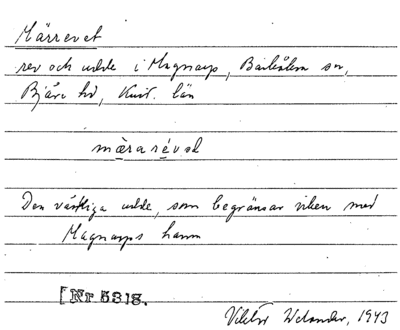 Märrevet
rev och udde i Magnarp, Barkåkra sn,
Bjäre hd, Krist. län
mæraréval
Den västliga udde, som begränsar viken med
Magnarps hamn
[Nr 5318.
Viktor Welander, 1943